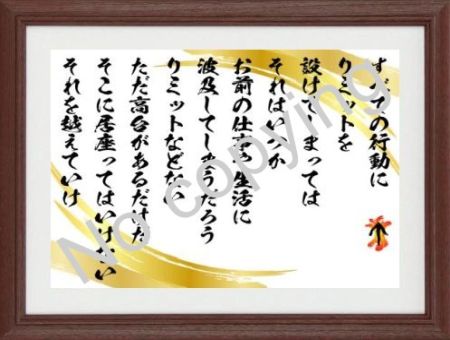 すべての行動に
リミットを
設けてしまっては
それはいつか
お前の仕事や生活に
波及してしまうだろう
リミットなどない
ただ高台があるだけだ
そこに居座ってはいけない
それを越えていけ
No copying